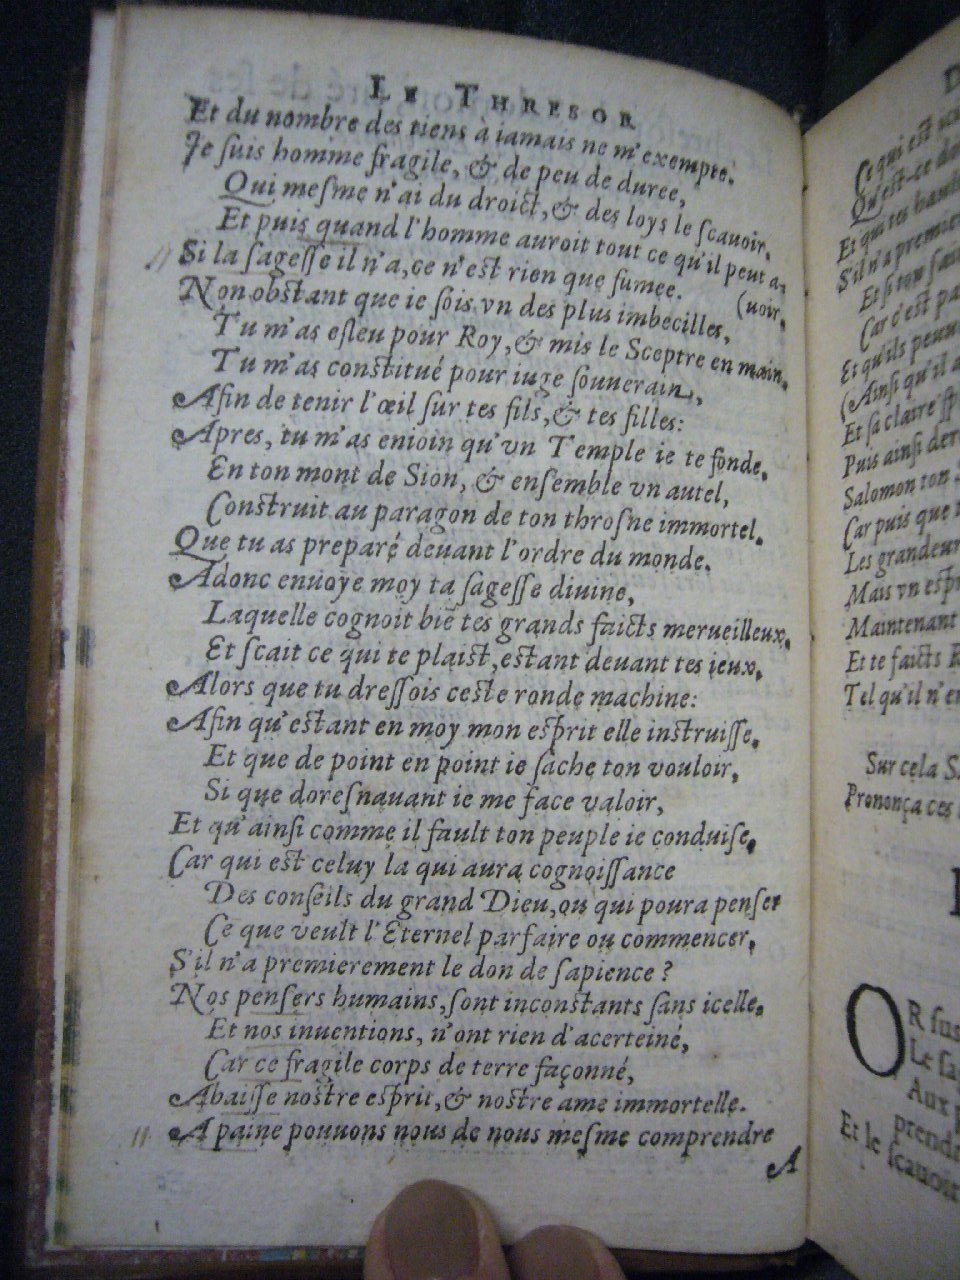 LE THRESOR
Et du nombre des tiens à iamais ne m'exempte.
Je ſuis homme fragile, & de peu de duree,
Qui meſme n'ai du droict, & des loys le ſcauoir.
Et puis quand l'homme auroit tout ce qu'il peut a-
(uoir.
Si la ſageſſe il n'a, ce n'est rien que fumee.
Non obstant que ie ſois vn des plus imbecilles,
Tu m'as eſleu pour Roy, & mis le Sceptre en main.
Tu m'as constitué pour iuge ſouuerain,
Afin de tenir l'œil ſur tes fils, & tes filles:
Apres, tu m'as enioin qu'vn Temple ie te fonde.
En ton mont de Sion, & enſemble vn autel,
Construit au paragon de ton throſne immortel.
Que tu as preparé deuant l'ordre du monde.
Adonc enuoye moy ta ſageſſe diuine,
Laquelle cognoit biẽ tes grands faicts merueilleux.
Et ſcait ce qui te plaist, estant deuant tes ieux.
Alors que tu dreſſois ceste ronde machine:
Afin qu'estant en moy mon eſprit elle instruiſſe.
Et que de point en point ie ſache ton vouloir,
Si que doreſnauant ie me face valoir,
Et qu'ainſi comme il fault ton peuple ie conduiſe.
Car qui est celuy la qui aura cognoiſſance
Des conſeils du grand Dieu, ou qui poura penſer
Ce que veult l'Eternel parfaire ou commencer,
S'il n'a premierement le don de ſapience ?
Nos penſers humains, ſont inconstants ſans icelle.
Et nos inuentions, n'ont rien d'acerteiné,
Car ce fragile corps de terre façonné,
Abaiſſe nostre eſprit, & nostre ame immortelle.
A paine pouuons nous de nous meſme comprendre
A
Ce qui est
Qu'est-ce
Et qui tes
S'il n'a premier
Et ſi ton
Car c'est
Et qu'ils
(Ainſi qu'il a
Et ſa claire
Puis ainſi
Salomon ton
Car puis que
Les grandeur
Mais vn eſpr
Maintenant
Et te faicts
Tel qu'il n'e
Sur cela
Prononça ces
OR ſus
Le ſa
Aux
prend
Et le ſcauoir